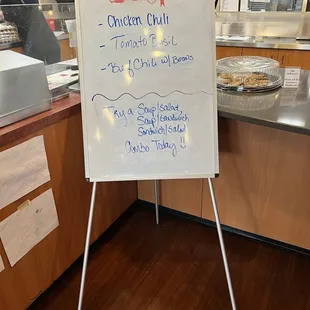 - Chicken Chili
- Tomato Basil
- Beef Chili w/ Beans
Try a Soup/Salad,
Soup/Sandwich
Sandwich/Salad
Combo Today!!